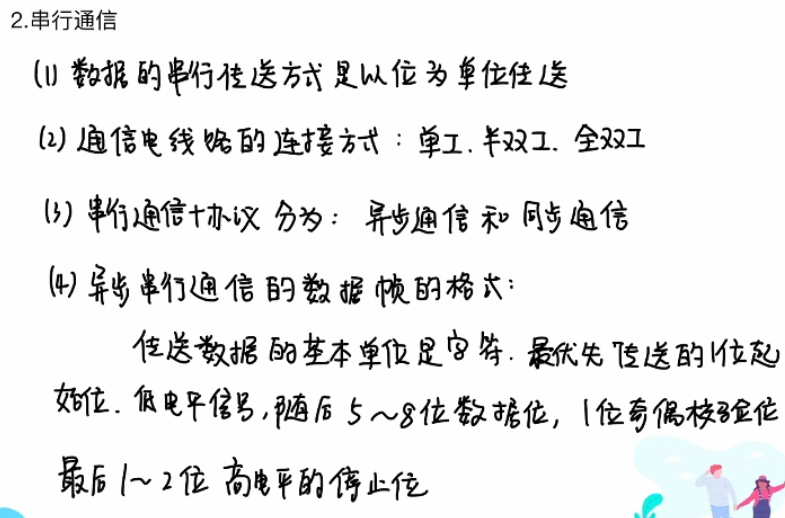 2.串行通信
(1) 数据的串行传送方式是以位为单位传送
(2) 通信电线路的连接方式：单工、半双工、全双工
(3) 串行通信协议 分为： 异步通信 和 同步通信
(4) 异步串行通信的数据帧的格式：
传送数据的基本单位是字符. 最优先传送的1位起
始位. 低电平信号, 随后 5～8位数据位, 1位奇偶校验位
最后 1～2位 高电平的停止位